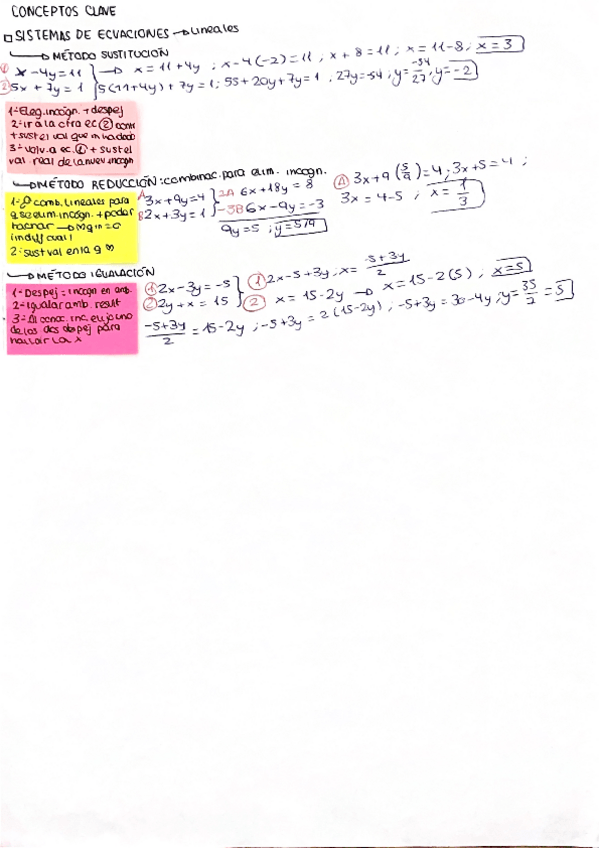 CONCEPTOS CLAVE
SISTEMAS DE ECUACIONES → lineales
→ MÉTODO SUSTITUCIÓN
① x - 4y = 11 } → x = 11 + 4y ; x - 4(-2) = 11 ; x + 8 = 11 ; x = 11 - 8 ; x = 3
② 5x + 7y = 1 } 5(11+4y) + 7y = 1 ; 55 + 20y + 7y = 1 ; 27y = -54 ; y = -54/27 ; y = -2
1- Eleg. incógn. + despej
2- ir a la otra ec ②
+ sust el val que
3- volv. a ec. ① + sust el
val real de la nuev. incogn
→ MÉTODO REDUCCIÓN: combinac. para elim. incogn.
A 3x + 9y = 4 } 2A 6x + 18y = 8
B 2x + 3y = 1 } -3B 6x - 9y = -3
9y = 5 ; y = 5/9
Ⓐ 3x + 9 (5/9) = 4 ; 3x + 5 = 4 ;
3x = 4 - 5 ; x = 1/3
1- comb. lineales para
q se elim. incógn. +
2- sust val en la
→ MÉTODO IGUALACIÓN
① 2x - 3y = -5 } ① 2x - 5 + 3y ; x = -5 + 3y/2
② 2y + x = 15 } ② x = 15 - 2y → x = 15 - 2(5) ; x = 5
-5 + 3y/2 = 15 - 2y ; -5 + 3y = 2(15 - 2y) ; -5 + 3y = 30 - 4y ; y = 35/7 = 5
1- Despej = incogn en amb.
2- Igualar amb. result
3- Al conoc. inc. en uno
de los dos despej para
hallar la x